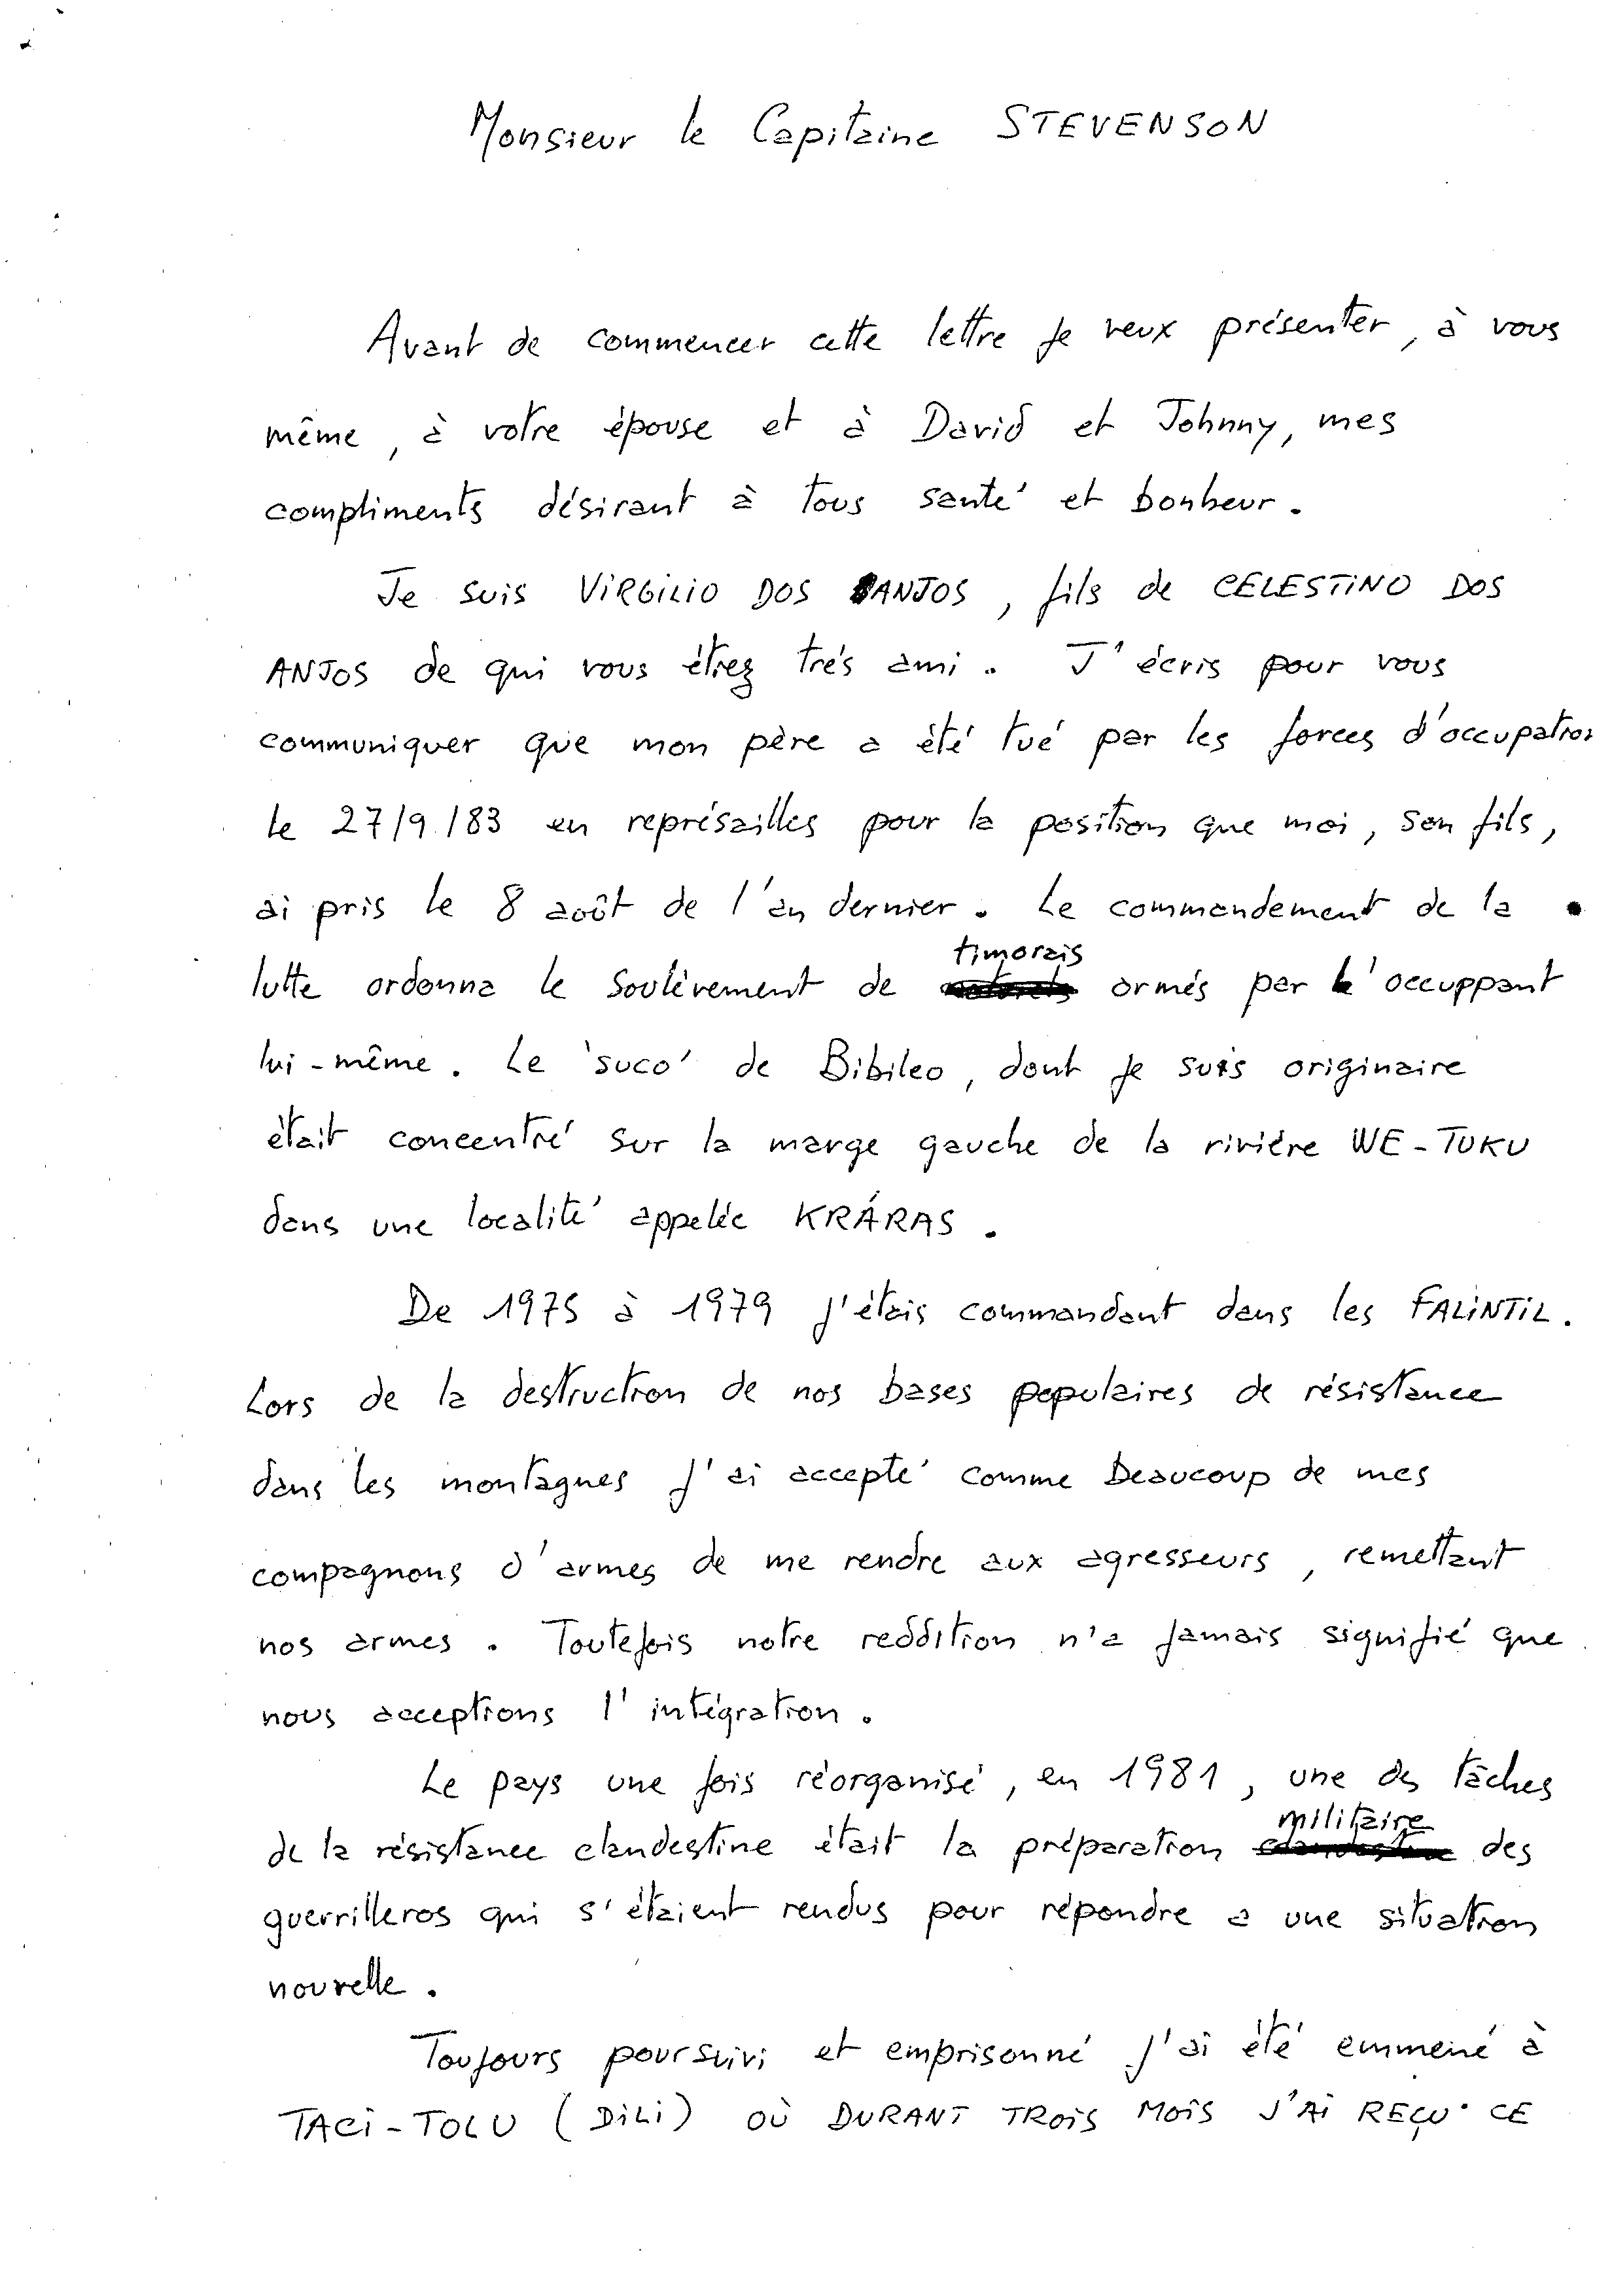 Monsieur le Capitaine STEVENSON
Avant de commencer cette lettre je veux présenter, à vous
même, à votre épouse et à David et Johnny, mes
compliments désirant à tous santé et bonheur.
Je suis VIRGILIO DOS ANJOS, fils de CELESTINO DOS
ANJOS de qui vous étiez trés ami. J'écris pour vous
communiquer que mon père a été tué par les forces d'occupation
le 27/9/83 en représailles pour la position que moi, son fils,
ai pris le 8 août de l'an dernier. Le commandement de la
lutte ordonna le soulèvement de timorais armés par l'occuppant
lui-même. Le 'suco' de Bibileo, dont je suis originaire
était concentré sur la marge gauche de la rivière WE-TUKU
dans une localité appelée KRÁRAS.
De 1975 à 1979 j'étais commandant dans les FALINTIL.
Lors de la destruction de nos bases populaires de résistance
dans les montagnes j'ai accepté comme beaucoup de mes
compagnons d'armes de me rendre aux agresseurs, remettant
nos armes. Toutefois notre reddition n'a jamais signifié que
nous acceptions l'intégration.
Le pays une fois réorganisé, en 1981, une des tâches
de la résistance clandestine était la préparation militaire des
guerrilleros qui s'étaient rendus pour répondre a une situation
nouvelle.
Toujours poursuivi et emprisonné j'ai été emmené à
TACI-TOLU (DILI) OÙ DURANT TROIS MOIS J'AI REÇU CE